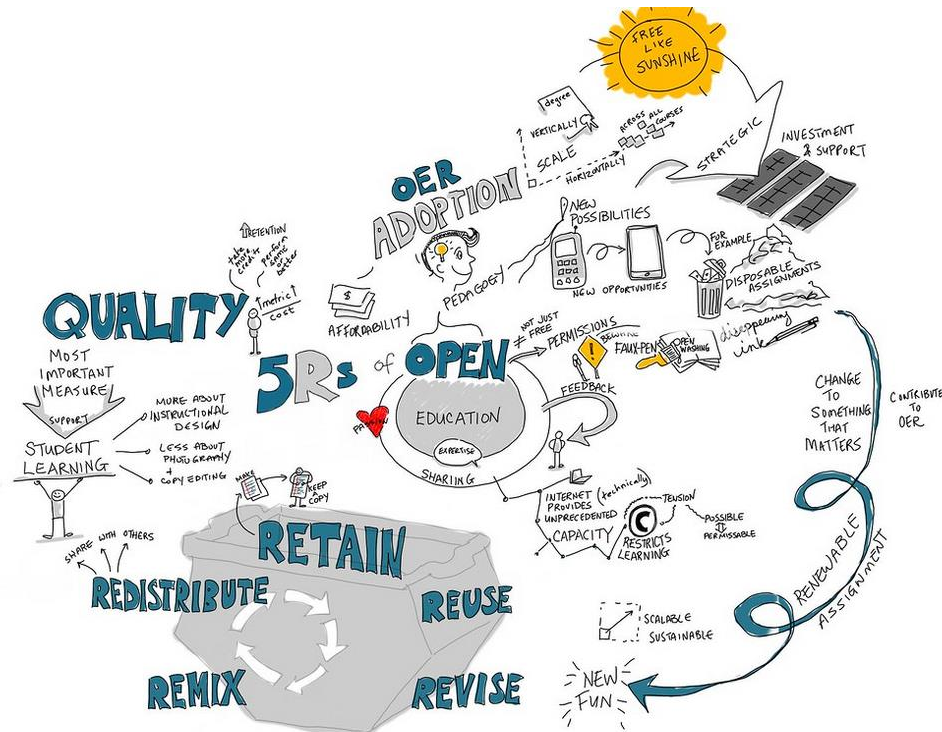 FREE
LIKE
SUNSHINE
STRATEGIC
INVESTMENT
& SUPPORT
degree
VERTICALLY
SCALE
HORIZONTALLY
ACROSS
ALL
COURSES
OER
ADOPTION
NEW
POSSIBILITIES
PEDAGOGY
NEW OPPORTUNITIES
FOR
EXAMPLE
DISPOSABLE
ASSIGNMENTS
disappearing
ink
RETENTION
take
more
credits
perform
same
or
better
metric
cost
$
AFFORDABILITY
QUALITY
MOST
IMPORTANT
MEASURE
SUPPORT
STUDENT
LEARNING
MORE ABOUT
INSTRUCTIONAL
DESIGN
LESS ABOUT
PHOTOGRAPHY
+
COPY EDITING
5Rs of OPEN
EDUCATION
EXPERTISE
SHARIING
≠ NOT JUST
FREE
PERMISSIONS
BEWARE
!
FAUX-PEN
OPEN
WASHING
FEEDBACK
INTERNET (technically)
PROVIDES
UNPRECEDENTED
CAPACITY
C
RESTRICTS
LEARNING
TENSION
POSSIBLE
PERMISSABLE
CHANGE
TO
SOMETHING
THAT
MATTERS
CONTRIBUTE
TO
OER
RENEWABLE
ASSIGNMENT
SCALABLE
SUSTAINABLE
NEW
FUN
MAKE
KEEP
A
COPY
RETAIN
SHARE WITH OTHERS
REDISTRIBUTE
REUSE
REMIX
REVISE